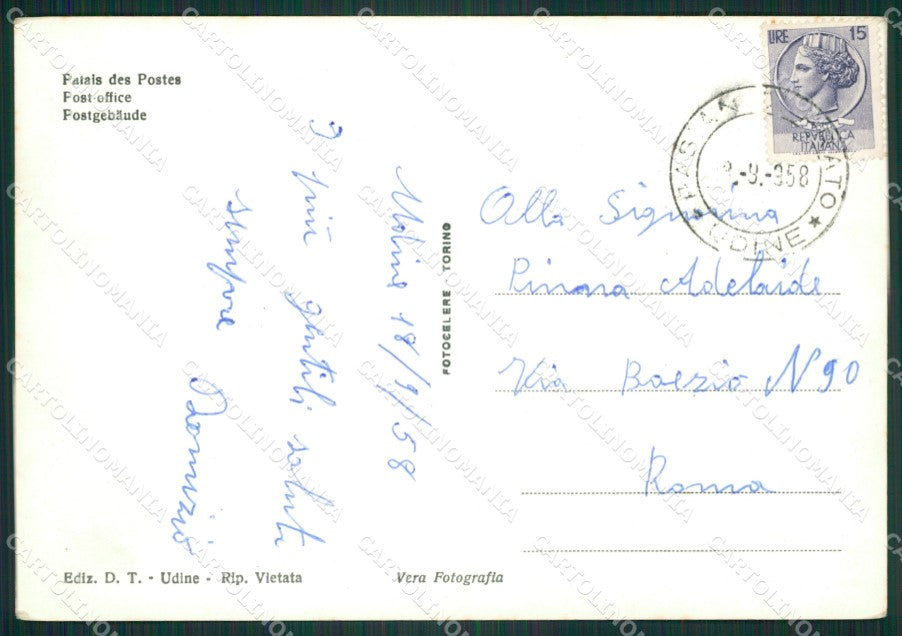 Palais des Postes
Post office
Postgebäude
LIRE 15
REPVBBLICA
ITALIANA
UDINE
Udine 18/9/58
I più gentili saluti
sempre
Domizio
FOTOCELERE - TORINO
Alla Signorina
Pinna Adelaide
Via Boezio N 90
Roma
Ediz. D. T. - Udine - Rip. Vietata
Vera Fotografia
CARTOLINOMANIA